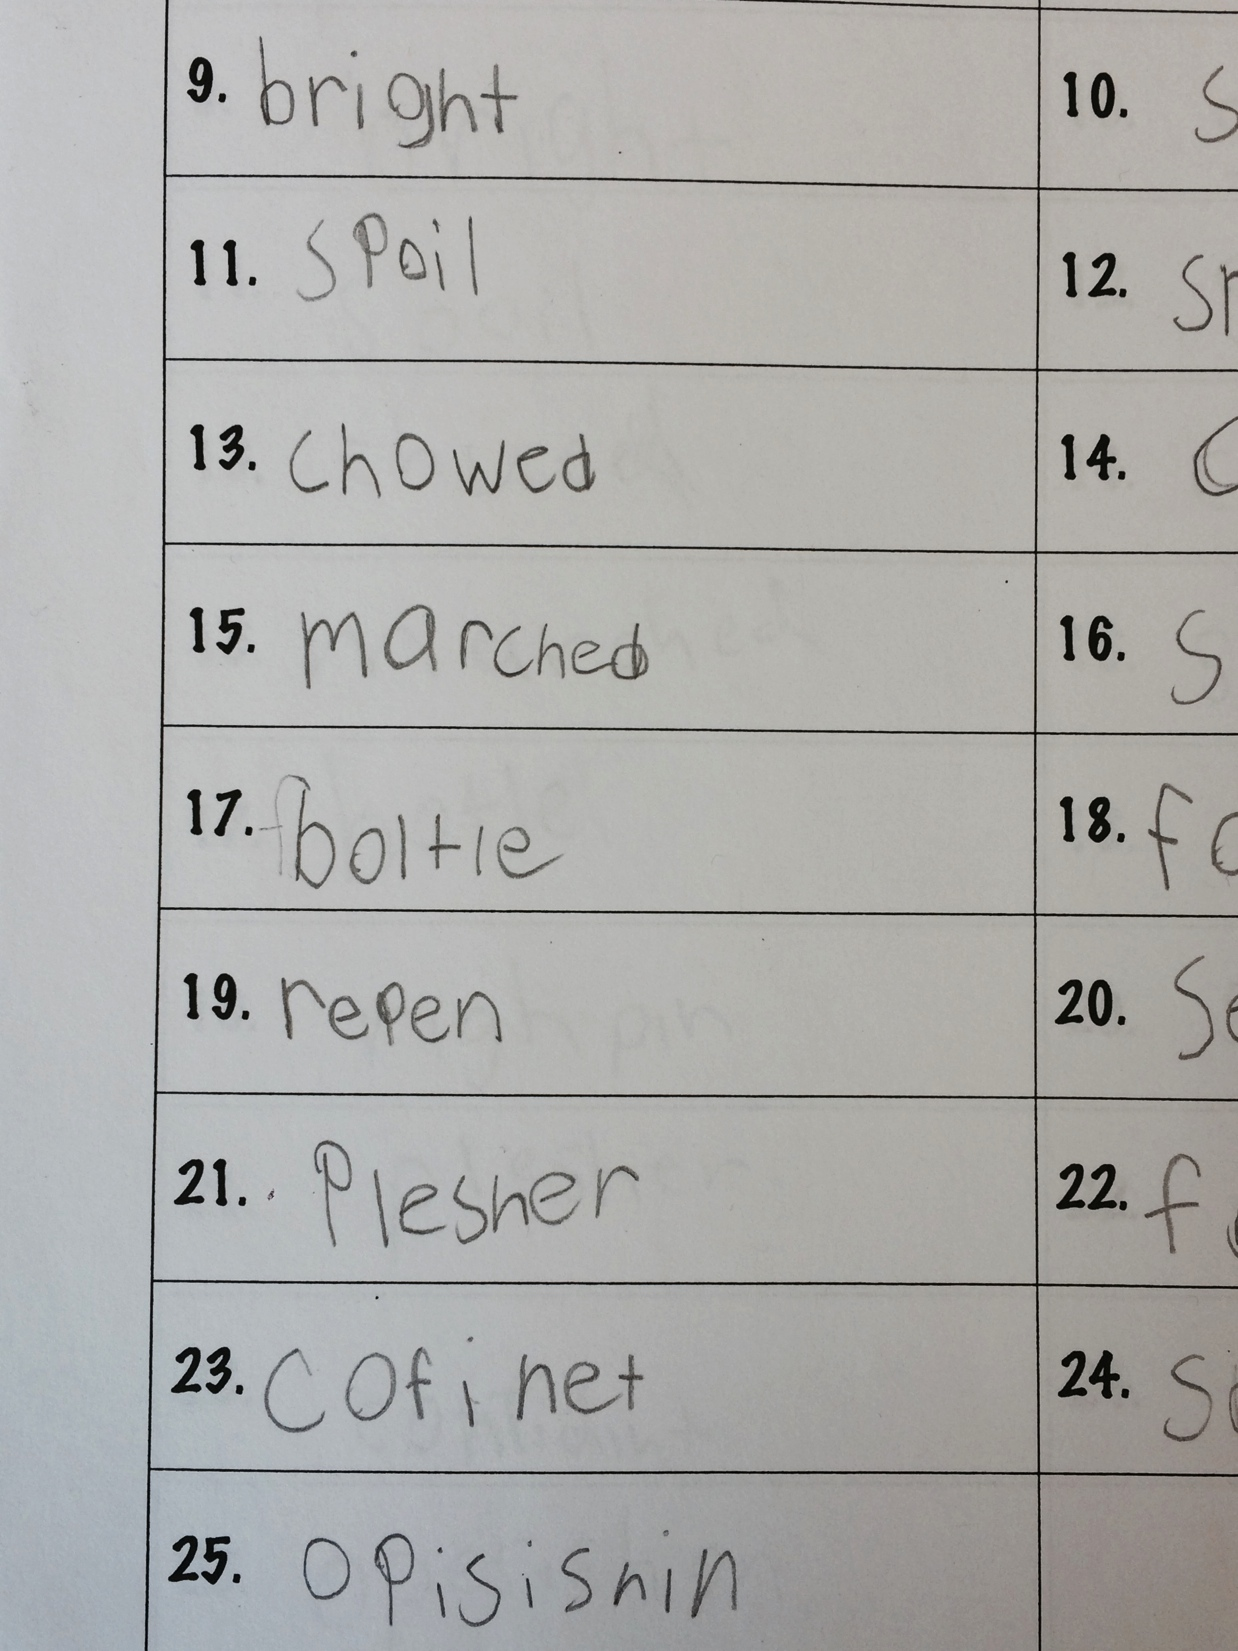 9. bright 10. S
11. SPoil 12. Sr
13. chowed 14. C
15. marched 16. S
17. boltle 18. fo
19. repen 20. Se
21. Plesher 22. f
23. Cofinet 24. S
25. OPisishin